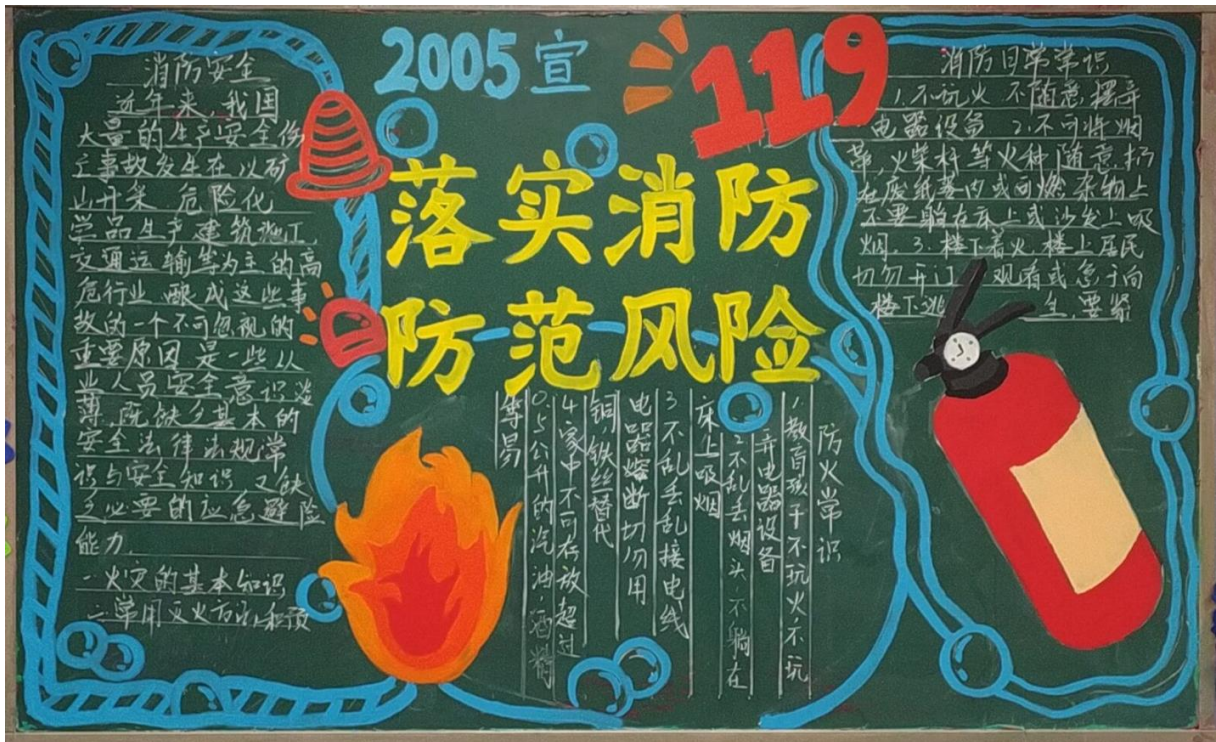 2005宣
119
落实消防
防范风险
消防安全
近年来,我国
大量的生产安全伤
亡事故发生在以矿
山开采 危险化
学品生产建筑施工
交通运输等为主的高
危行业 酿成这些事
故的一个不可忽视的
重要原因 是一些从
业人员安全意识淡
薄,既缺乏基本的
安全法律法规常
识与安全知识 又缺
乏必要的应急避险
能力.
一火灾的基本知识
二常用灭火方法和预
防火常识
1.教育孩子不玩火.不玩
弄电器设备
2不乱丢烟头.不躺在
床上吸烟
3不乱丢乱接电线
电器熔断切勿用
铜 铁丝替代
4家中不可存放超过
0.5公升的汽油.酒精
等易
消防日常学识
1.不玩火 不随意 摆弄
电器设备 2.不可将烟
蒂,火柴杆等火种随意扔
在废纸篓内或可燃杂物上
不要躺在床上或沙发上吸
烟. 3.楼下着火.楼上居民
切勿开门 观看或急于向
楼下逃 生.要紧